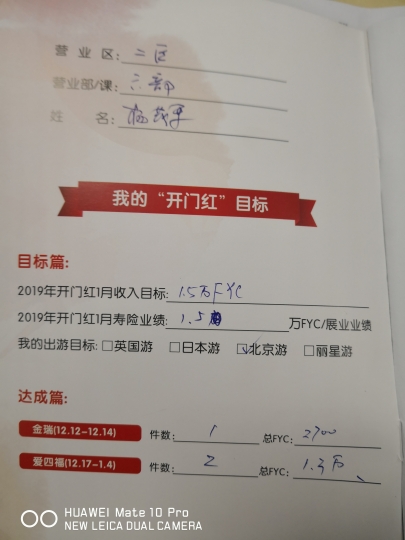 营业区: 二区
营业部/课: 三部
姓 名: 杨茂军
我的“开门红”目标
目标篇:
2019年开门红1月收入目标: 1.5万FYC
2019年开门红1月寿险业绩: 1.5 万FYC/展业业绩
我的出游目标: □英国游 □日本游 ☑北京游 □丽星游
达成篇:
金瑞(12.12-12.14) 件数: 1 总FYC: 2700
爱四福(12.17-1.4) 件数: 2 总FYC: 1.3万
HUAWEI Mate 10 Pro
NEW LEICA DUAL CAMERA